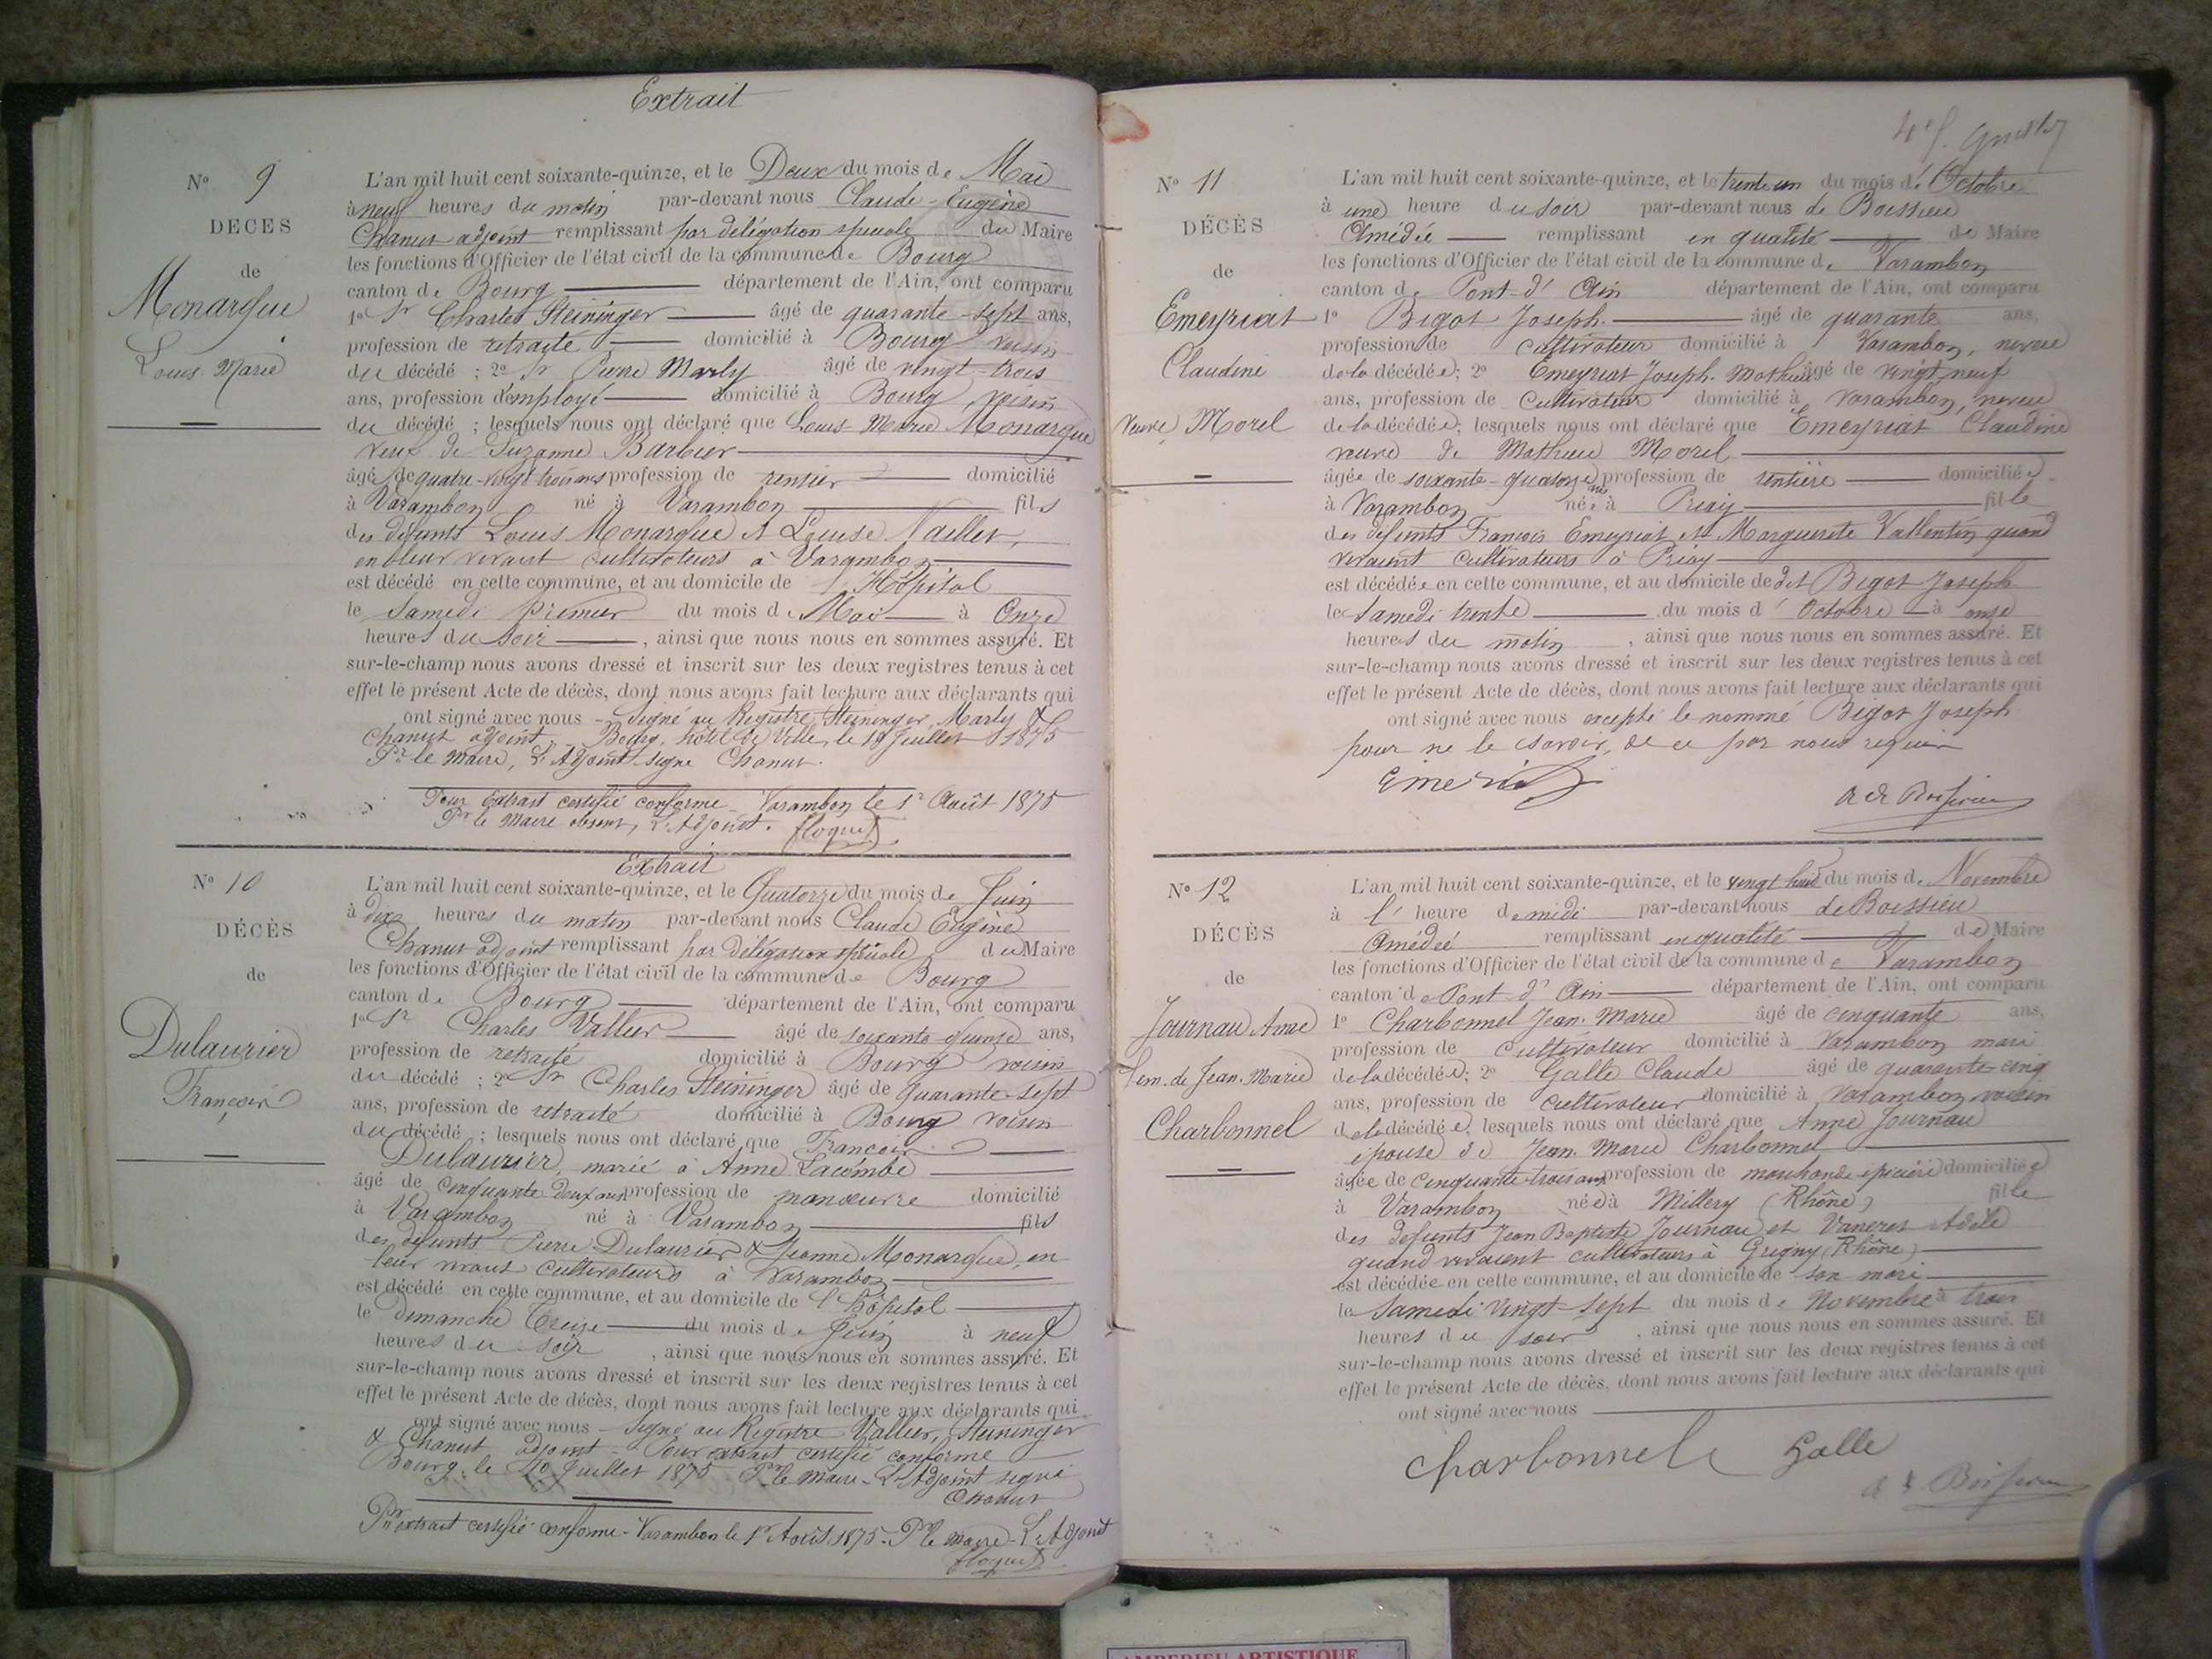 Extrait
N° 9
DÉCÈS
de
Monarque
Louis Marie
L'an mil huit cent soixante-quinze, et le Deux du mois de Mai
à neuf heures du matin par-devant nous Claude-Eugène
Chanut adjoint remplissant par délégation spéciale du Maire
les fonctions d'Officier de l'état civil de la commune de Bourg
canton de Bourg département de l'Ain, ont comparu
1° Sr Charles Steininger âgé de quarante-sept ans,
profession de retraité domicilié à Bourg voisin
du décédé ; 2° Sr Pierre Marly âgé de vingt-trois
ans, profession d'employé domicilié à Bourg, voisin
du décédé ; lesquels nous ont déclaré que Louis Marie Monarque
veuf de Suzanne Barbier
âgé de quatre-vingt-trois ans profession de rentier domicilié
à Varambon né à Varambon fils
des défunts Louis Monarque et Louise
en leur vivant cultivateurs à Varambon
est décédé en cette commune, et au domicile de l'Hôpital
le Samedi premier du mois de Mai à Onze
heures du soir, ainsi que nous nous en sommes assuré. Et
sur-le-champ nous avons dressé et inscrit sur les deux registres tenus à cet
effet le présent Acte de décès, dont nous avons fait lecture aux déclarants qui
ont signé avec nous - Signé au Registre Steininger, Marly &
Chanut adjoint. Bourg, hôtel de Ville, le 10 Juillet 1875
Pr le Maire, L'Adjoint signé Chanut.
Pour Extrait certifié conforme Varambon le 1r Août 1875
Pr le Maire absent, L'Adjoint. floquet
N° 10
DÉCÈS
de
Dulaurier
François
Extrait
L'an mil huit cent soixante-quinze, et le Quatorze du mois de Juin
à dix heures du matin par-devant nous Claude Eugène
Chanut adjoint remplissant par Délégation spéciale du Maire
les fonctions d'Officier de l'état civil de la commune de Bourg
canton de Bourg département de l'Ain, ont comparu
1° Sr Charles Vallier âgé de soixante quinze ans,
profession de retraité domicilié à Bourg voisin
du décédé ; 2° Sr Charles Steininger âgé de quarante-sept
ans, profession de retraité domicilié à Bourg voisin
du décédé ; lesquels nous ont déclaré que François
Dulaurier, marié à Anne Lacombe
âgé de cinquante deux ans profession de manoeuvre domicilié
à Varambon né à Varambon fils
des défunts Pierre Dulaurier & Jeanne Monarque, en
leur vivant cultivateurs à Varambon
est décédé en cette commune, et au domicile de l'hôpital
le Dimanche Treize du mois de Juin à neuf
heures du soir, ainsi que nous nous en sommes assuré. Et
sur-le-champ nous avons dressé et inscrit sur les deux registres tenus à cet
effet le présent Acte de décès, dont nous avons fait lecture aux déclarants qui
ont signé avec nous - Signé au Registre Vallier, Steininger
& Chanut adjoint - Pour extrait certifié conforme
Bourg, le 10 Juillet 1875 Pr le Maire - L'Adjoint signé
Chanut
Pr extrait certifié conforme - Varambon le 1er Août 1875 - Pr le Maire - L'Adjoint
floquet
N° 11
DÉCÈS
de
Emeyriat
Claudine
Veuve Morel
L'an mil huit cent soixante-quinze, et le trente un du mois d'Octobre
à une heure du soir par-devant nous de Boissieu
Amédée remplissant en qualité de Maire
les fonctions d'Officier de l'état civil de la commune de Varambon
canton de Pont-d'Ain département de l'Ain, ont comparu
1° Bigot Joseph âgé de quarante ans,
profession de cultivateur domicilié à Varambon, neveu
de la décédée; 2° Emeyriat Joseph-Mathieu âgé de vingt neuf
ans, profession de Cultivateur domicilié à Varambon, neveu
de la décédée; lesquels nous ont déclaré que Emeyriat Claudine
veuve de Mathieu Morel
âgée de soixante-quatorze ans profession de rentière domiciliée
à Varambon née à Priay fille
des défunts François Emeyriat et Marguerite Vallentin quand
vivaient cultivateurs à Priay
est décédée en cette commune, et au domicile de dit Bigot Joseph
le Samedi trente du mois d'Octobre à onze
heures du matin, ainsi que nous nous en sommes assuré. Et
sur-le-champ nous avons dressé et inscrit sur les deux registres tenus à cet
effet le présent Acte de décès, dont nous avons fait lecture aux déclarants qui
ont signé avec nous excepté le nommé Bigot Joseph
pour ne le savoir, de ce par nous requis
A de Boissieu
N° 12
DÉCÈS
de
Journau Anne
fem. de Jean-Marie
Charbonnel
L'an mil huit cent soixante-quinze, et le vingt huit du mois de Novembre
à l'heure de midi par-devant nous de Boissieu
Amédée remplissant en qualité de Maire
les fonctions d'Officier de l'état civil de la commune de Varambon
canton de Pont-d'Ain département de l'Ain, ont comparu
1° Charbonnel Jean-Marie âgé de cinquante ans,
profession de cultivateur domicilié à Varambon mari
de la décédée; 2° Galle Claude âgé de quarante-cinq
ans, profession de cultivateur domicilié à Varambon voisin
de la décédée, lesquels nous ont déclaré que Anne Journau
épouse de Jean-Marie Charbonnel
âgée de cinquante-trois ans profession de marchande épicière domiciliée
à Varambon née à Millery (Rhône) fille
des défunts Jean Baptiste Journau et Adèle
quand vivaient cultivateurs à Grigny (Rhône)
est décédée en cette commune, et au domicile de son mari
le Samedi vingt-sept du mois de Novembre à trois
heures du soir, ainsi que nous nous en sommes assuré. Et
sur-le-champ nous avons dressé et inscrit sur les deux registres tenus à cet
effet le présent Acte de décès, dont nous avons fait lecture aux déclarants qui
ont signé avec nous
Charbonnel Galle
A de Boissieu